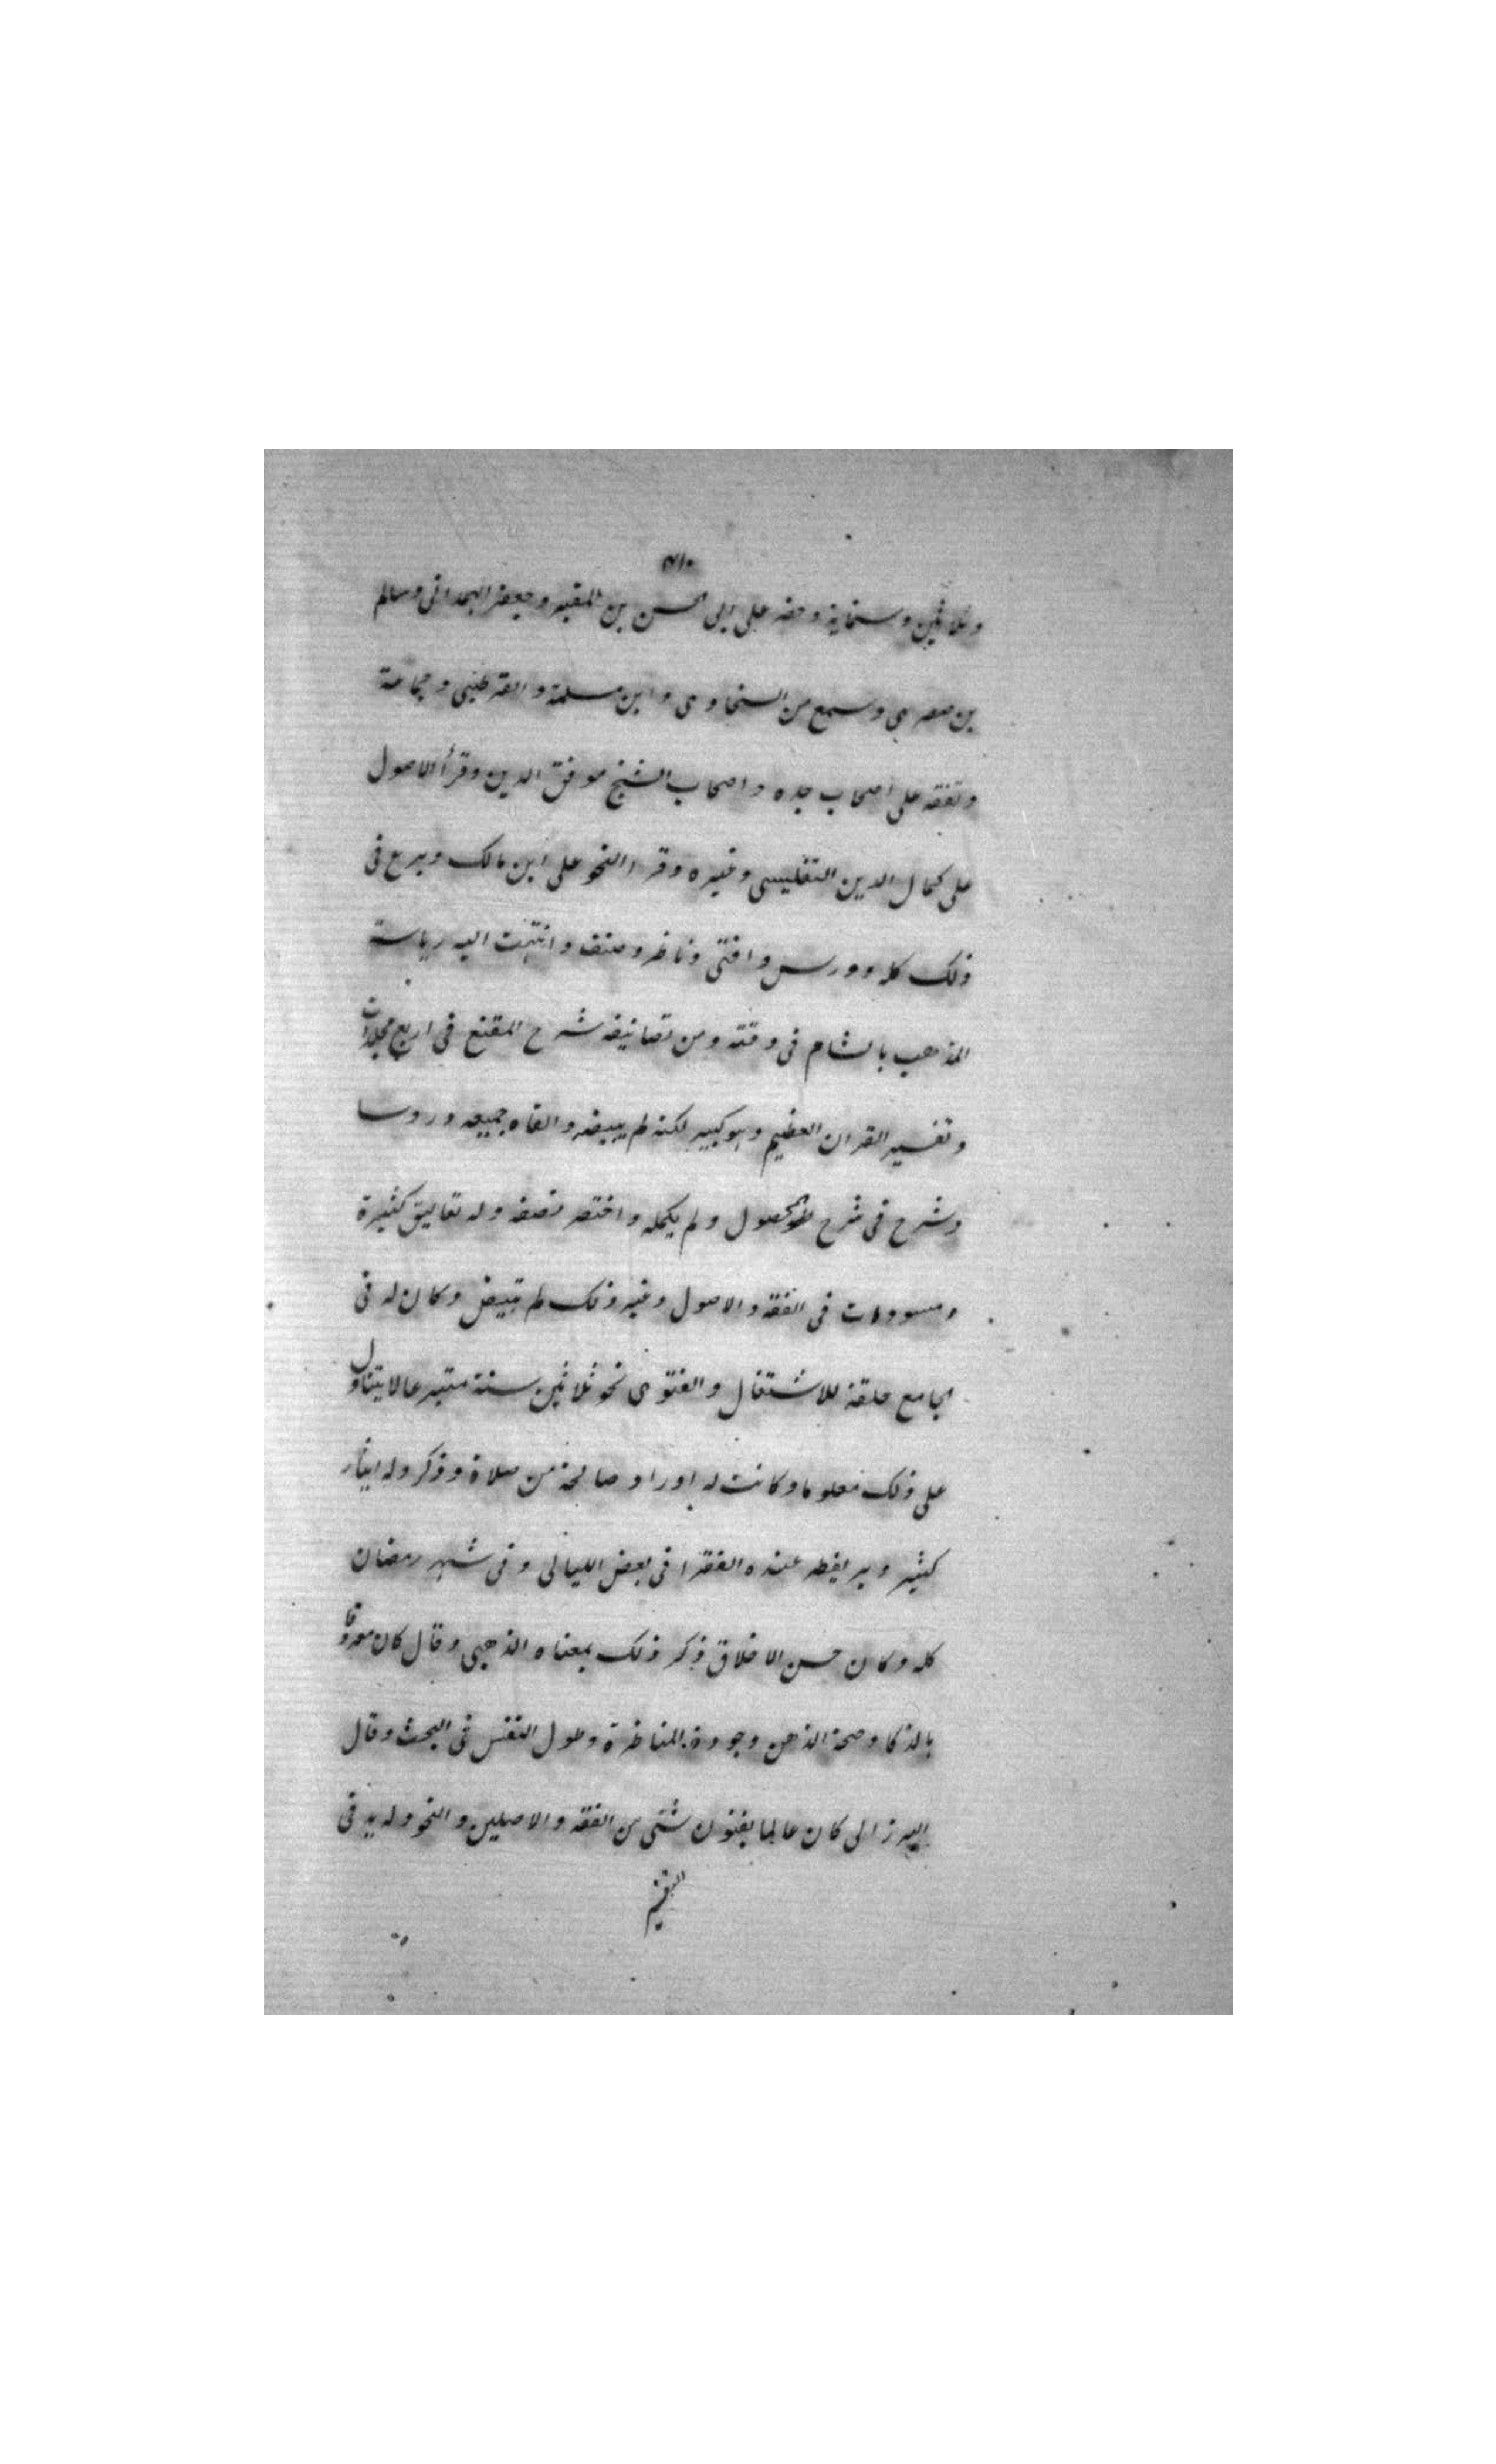 وثلاثين وستماية وحضر على ابى الحسن بن المقير وجعفر الهمدانى وسالم
بن صصرى وسمع من السخاوى وابن مسلمة والقرطبى وجماعة
وتفقه على اصحاب جده واصحاب الشيخ موفق الدين وقرأ الاصول
على كمال الدين التفليسى وغيره وقرا النحو على ابن مالك وبرع فى
ذلك كله ودرس وافتى وناظر وصنف وانتهت اليه رياسة
المذهب بالشام فى وقته ومن تصانيفه شرح المقنع فى اربع مجلدات
وتفسير القران العظيم وهو كبير لكنه لم يبيضه والقاه جميعه دروسا
وشرح فى شرح المحصول ولم يكمله واختصر نصفه وله تعاليق كثيرة
ومسودات فى الفقه والاصول وغير ذلك لم تبيض وكان له فى
الجامع حلقة للاشتغال والفتوى نحو ثلاثين سنة متبرعا لا يتناول
على ذلك معلوما وكانت له اوراد صالحة من صلاة وذكر وله ايثار
كثير وبر يفطر عنده الفقرا فى بعض الليالى وفى شهر رمضان
كله وكان حسن الاخلاق ذكر ذلك بمعناه الذهبى وقال كان معروفا
بالذكا وصحة الذهن وجودة المناظرة وطول النفس فى البحث وقال
البرزالى كان عالما بفنون شتى من الفقه والاصلين والنحو وله يد فى